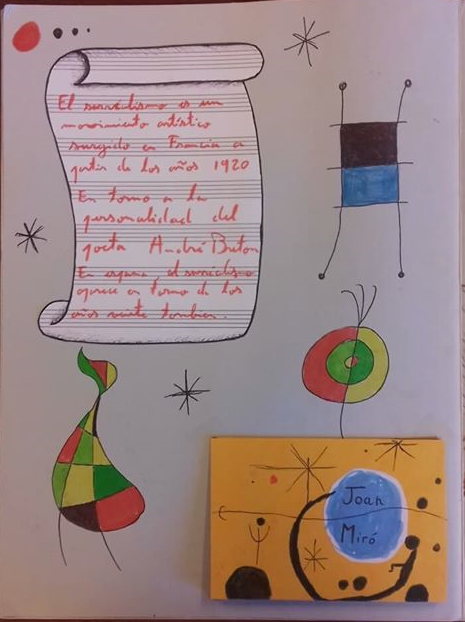 El surrealismo es un
movimiento artístico
surgido en Francia a
partir de los años 1920
En torno a la
personalidad del
poeta André Breton
En espana, el surrealismo
aparece en torno de los
años veinte tambien.
Joan
Miró